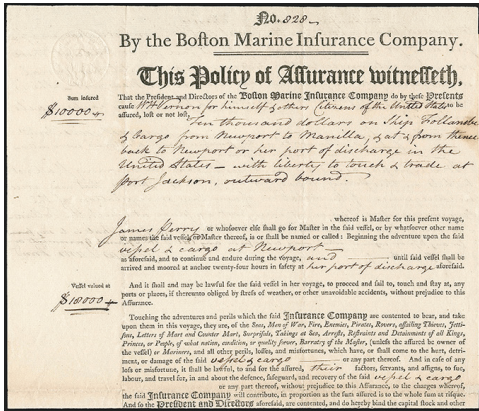 No. 828
By the Boston Marine Insurance Company.
This Policy of Assurance witnesseth,
Sum insured
$10000
That the President and Directors of the Boston Marine Insurance Company do by these Presents
cause Wm Vernon for himself & others Citizens of the United States to be
assured, lost or not lost, Ten thousand dollars on Ship
& Cargo from Newport to Manilla, & at & from thence
back to Newport or her port of discharge in the
United States — with liberty to touch & trade at
Port Jackson, outward bound.
James Perry whereof is Master for this present voyage,
or whosoever else shall go for Master in the said vessel, or by whatsoever other name
or names the said vessel, or Master thereof, is or shall be named or called: Beginning the adventure upon the said
vessel & cargo at Newport —
as aforesaid, and to continue and endure during the voyage, and until said vessel shall be
arrived and moored at anchor twenty-four hours in safety at her port of discharge aforesaid.
Vessel valued at
$18000
And it shall and may be lawful for the said vessel in her voyage, to proceed and sail to, touch and stay at, any
ports or places, if thereunto obliged by stress of weather, or other unavoidable accidents, without prejudice to this
Assurance.
Touching the adventures and perils which the said Insurance Company are contented to bear, and take
upon them in this voyage, they are, of the Seas, Men of War, Fire, Enemies, Pirates, Rovers, assailing Thieves, Jetti-
sons, Letters of Mart and Counter Mart, Surprisals, Takings at Sea, Arrests, Restraints and Detainments of all Kings,
Princes, or People, of what nation, condition, or quality soever, Barratry of the Master, (unless the assured be owner
of the vessel) or Mariners, and all other perils, losses, and misfortunes, which have, or shall come to the hurt, detri-
ment, or damage of the said vessel & cargo or any part thereof. And in case of any
loss or misfortune, it shall be lawful, to and for the assured, their factors, servants, and assigns, to sue,
labour, and travel for, in and about the defence, safeguard, and recovery of the said vessel & cargo
or any part thereof, without prejudice to this Assurance, to the charges whereof, the
said Insurance Company will contribute, in proportion as the sum assured is to the whole sum at risque.
And so the President and Directors aforesaid, are contented, and do hereby bind the capital stock and other